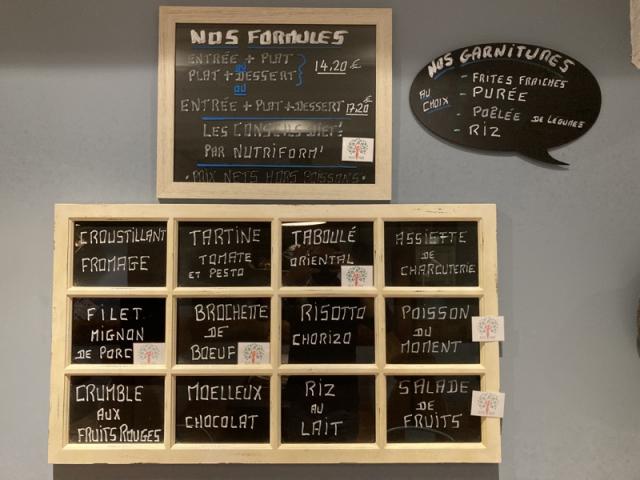 NOS FORMULES
ENTRÉE + PLAT
ou
PLAT + DESSERT
14,20 €
ou
ENTRÉE + PLAT + DESSERT 17,20 €
LES CONSEILS DIET!
PAR NUTRIFORM'
NOS GARNITURES
AU CHOIX
- FRITES FRAICHES
- PURÉE
- POÊLÉE DE LÉGUMES
- RIZ
CROUSTILLANT
FROMAGE
TARTINE
TOMATE
ET PESTO
TABOULÉ
ORIENTAL
ASSIETTE
DE
CHARCUTERIE
FILET
MIGNON
DE PORC
BROCHETTE
DE
BOEUF
RISOTTO
CHORIZO
POISSON
DU
MOMENT
CRUMBLE
AUX
FRUITS ROUGES
MOELLEUX
CHOCOLAT
RIZ
AU
LAIT
SALADE
DE
FRUITS